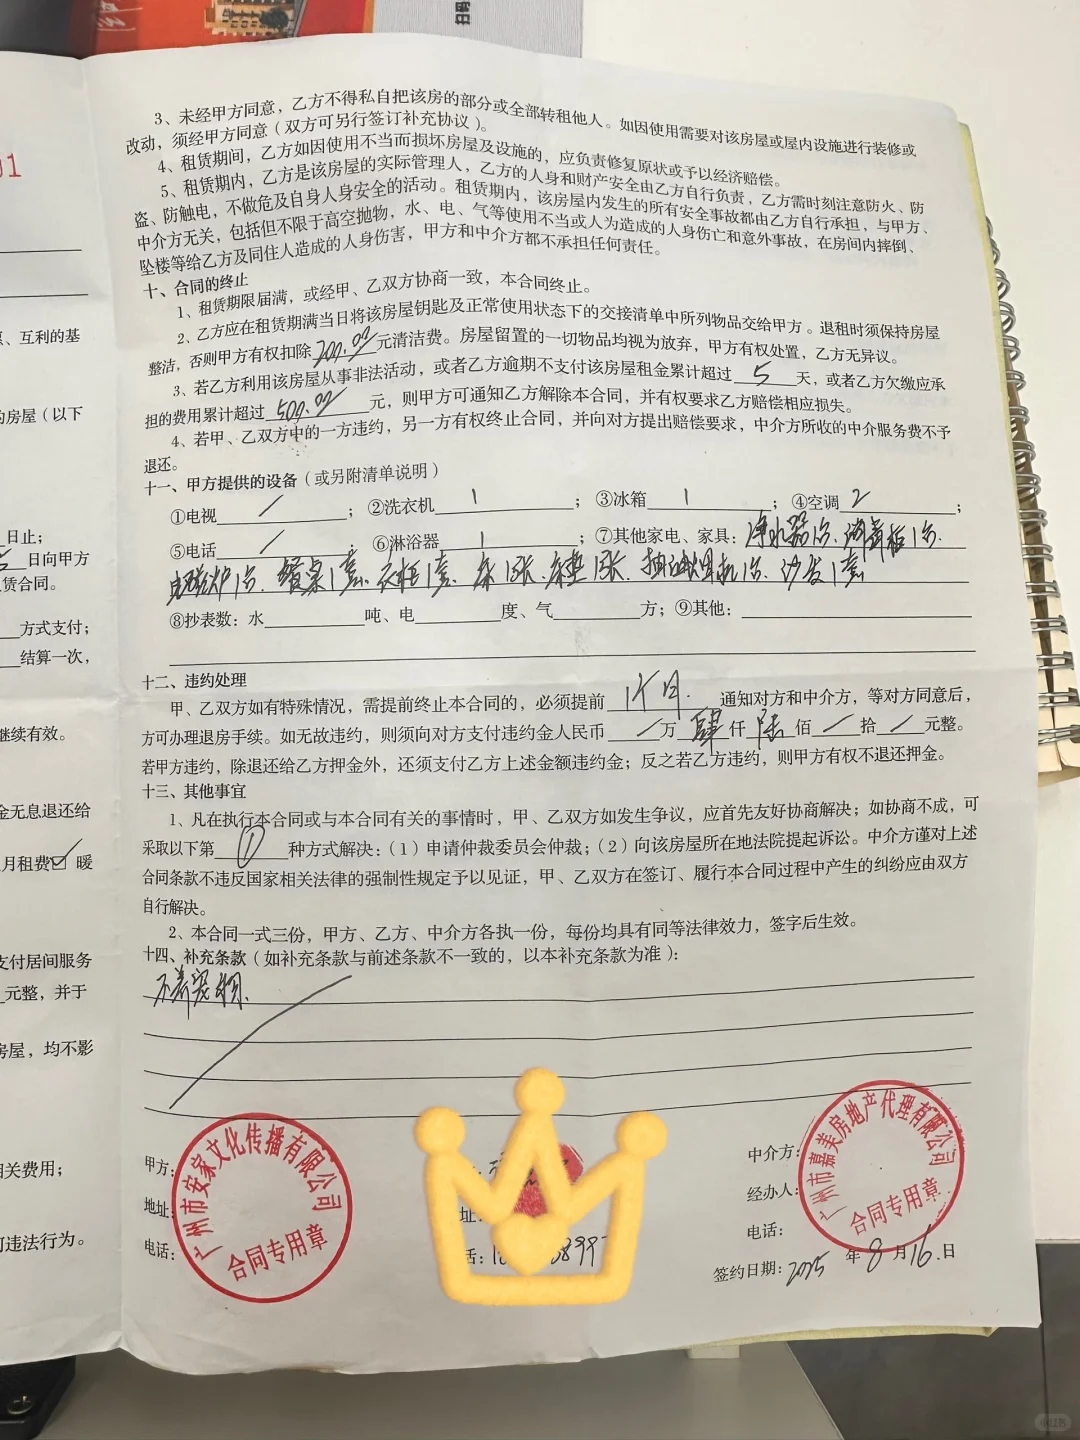 扫码
01
3、未经甲方同意，乙方不得私自把该房的部分或全部转租他人。如因使用需要对该房屋或屋内设施进行装修或
改动，须经甲方同意（双方可另行签订补充协议）。
4、租赁期间，乙方如因使用不当而损坏房屋及设施的，应负责修复原状或予以经济赔偿。
5、租赁期内，乙方是该房屋的实际管理人，乙方的人身和财产安全由乙方自行负责，乙方需时刻注意防火、防
盗、防触电，不做危及自身人身安全的活动。租赁期内，该房屋内发生的所有安全事故都由乙方自行承担，与甲方、
中介方无关，包括但不限于高空抛物，水、电、气等使用不当或人为造成的人身伤亡和意外事故，在房间内摔倒、
坠楼等给乙方及同住人造成的人身伤害，甲方和中介方都不承担任何责任。
十、合同的终止
1、租赁期限届满，或经甲、乙双方协商一致，本合同终止。
2、乙方应在租赁期满当日将该房屋钥匙及正常使用状态下的交接清单中所列物品交给甲方。退租时须保持房屋
整洁，否则甲方有权扣除200.00元清洁费。房屋留置的一切物品均视为放弃，甲方有权处置，乙方无异议。
3、若乙方利用该房屋从事非法活动，或者乙方逾期不支付该房屋租金累计超过5天，或者乙方欠缴应承
担的费用累计超过500.00元，则甲方可通知乙方解除本合同，并有权要求乙方赔偿相应损失。
4、若甲、乙双方中的一方违约，另一方有权终止合同，并向对方提出赔偿要求，中介方所收的中介服务费不予
退还。
十一、甲方提供的设备（或另附清单说明）
①电视／；②洗衣机1；③冰箱1；④空调2；
⑤电话／；⑥淋浴器1；⑦其他家电、家具：净水器1台、消毒柜1台、
电磁炉1台、餐桌1套、衣柜1套、床1张、床垫1张、抽油烟机1台、沙发1套
⑧抄表数：水 吨、电 度、气 方；⑨其他：
十二、违约处理
甲、乙双方如有特殊情况，需提前终止本合同的，必须提前1个月通知对方和中介方，等对方同意后，
方可办理退房手续。如无故违约，则须向对方支付违约金人民币／万肆仟陆佰／拾／元整。
若甲方违约，除退还给乙方押金外，还须支付乙方上述金额违约金；反之若乙方违约，则甲方有权不退还押金。
十三、其他事宜
1、凡在执行本合同或与本合同有关的事情时，甲、乙双方如发生争议，应首先友好协商解决；如协商不成，可
采取以下第①种方式解决：（1）申请仲裁委员会仲裁；（2）向该房屋所在地法院提起诉讼。中介方谨对上述
合同条款不违反国家相关法律的强制性规定予以见证，甲、乙双方在签订、履行本合同过程中产生的纠纷应由双方
自行解决。
2、本合同一式三份，甲方、乙方、中介方各执一份，每份均具有同等法律效力，签字后生效。
十四、补充条款（如补充条款与前述条款不一致的，以本补充条款为准）：
不养宠物.
甲方：
地址：
电话：
广州市安家文化传播有限公司
合同专用章
址：
话：
中介方：
经办人：
电话：
广州市嘉美房地产代理有限公司
合同专用章
签约日期：2025年8月16日
、互利的基
的房屋（以下
日止；
日向甲方
赁合同。
方式支付；
结算一次，
继续有效。
金无息退还给
月租费☑ 暖
支付居间服务
元整，并于
房屋，均不影
相关费用；
违法行为。